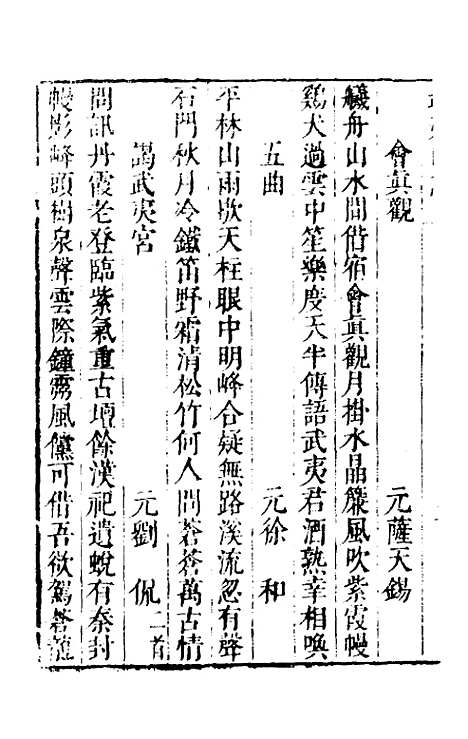 會眞觀　元薩天錫
艤舟山水間借宿會眞觀月掛水晶簾風吹紫霞幔
鷄犬過雲中笙樂度天半傳語武夷君酒熟幸相喚
五曲　元徐和
平林山雨歇天柱眼中明峰合疑無路溪流忽有聲
石門秋月冷鐵笛野霜清松竹何人問蒼蒼萬古情
謁武夷宮　元劉侃二首
問訊丹霞老登臨紫氣重古壇餘漢祀遺蛻有秦封
幔影峰頭樹泉聲雲際鐘靈風儻可借吾欲駕蒼龍